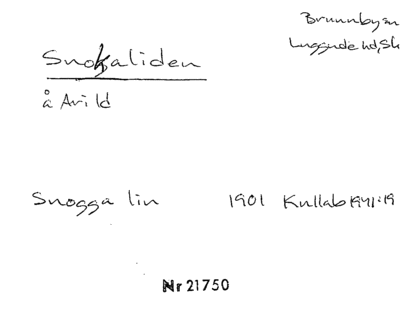 Brunnby sn
Luggude hd, Sk
Snokaliden
å Arild
Snogga lin 1901 Kullab 1941:19
Nr 21750